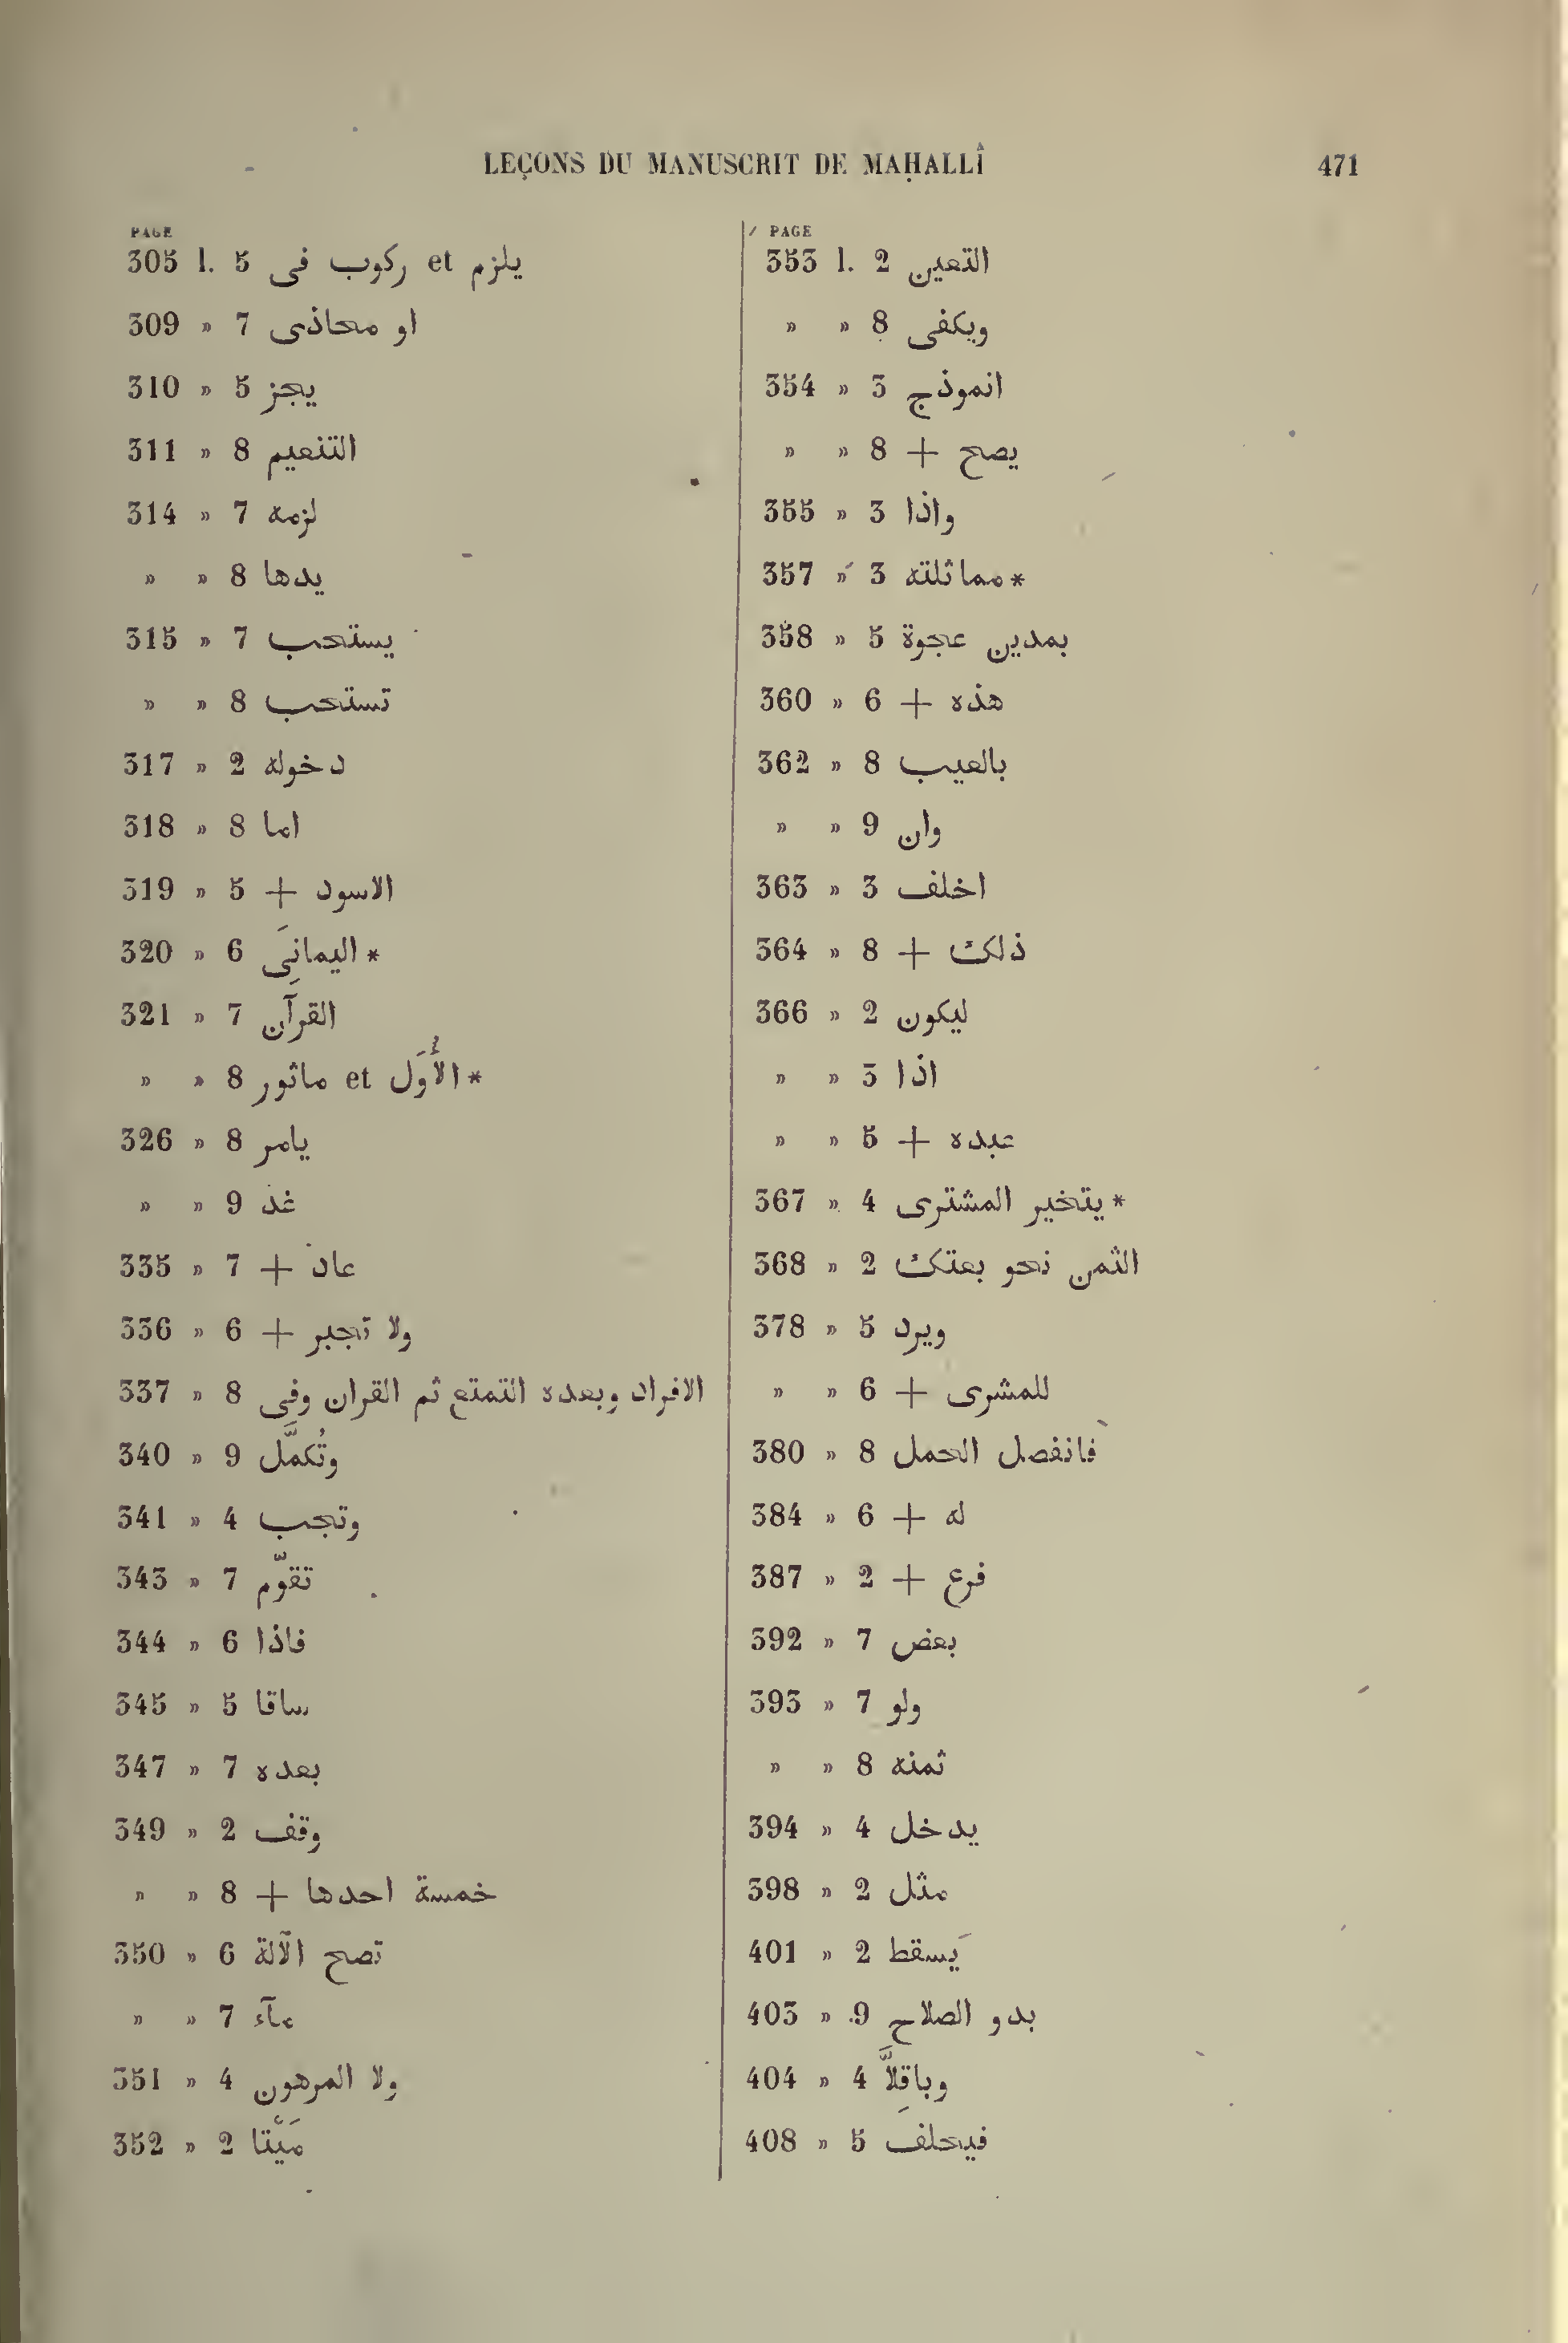 LEÇONS DU MANUSCRIT DE MAḤALLÎ 471
PAGE
305 l. 5 ركوب فى et يلزم
309 » 7 او محاذى
310 » 5 يجز
311 » 8 التنعيم
314 » 7 لزمه
» » 8 يدها
315 » 7 يستحب
» » 8 تستحب
317 » 2 دخوله
318 » 8 اما
319 » 5 + الاسود
320 » 6 اليمانِىَ *
321 » 7 القرآن
» » 8 ماثور et الأُوَل *
326 » 8 يامر
» » 9 غد
335 » 7 + عاد
336 » 6 + ولا تجبر
337 » 8 الافراد وبعده التمتع ثم القران وفى
340 » 9 وتُكمَّل
341 » 4 وتجب
343 » 7 تقوّم
344 » 6 فاذا
345 » 5 ساقا
347 » 7 بعده
349 » 2 وقف
» » 8 + خمسة احدها
350 » 6 تصح الآلة
» » 7 مآء
351 » 4 ولا المرهون
352 » 2 مَيْتا
PAGE
353 l. 2 التعين
» » 8 ويكفى
354 » 3 انموذج
» » 8 + يصح
355 » 3 واذا
357 » 3 مماثلته *
358 » 5 بمدين عجوة
360 » 6 + هذه
362 » 8 بالعيب
» » 9 وان
363 » 3 اخلف
364 » 8 + ذلك
366 » 2 ليكون
» » 3 اذا
» » 5 + عبده
367 » 4 يتخير المشترى *
368 » 2 الثمن نحو بعتك
378 » 5 ويرد
» » 6 + للمشرى
380 » 8 فانفصل الحمل
384 » 6 + له
387 » 2 + فرع
392 » 7 بعض
393 » 7 ولو
» » 8 ثمنه
394 » 4 يدخل
398 » 2 مثل
401 » 2 يسقط
403 » 9 بدو الصلاح
404 » 4 وباقِلَّاً
408 » 5 فيحلف